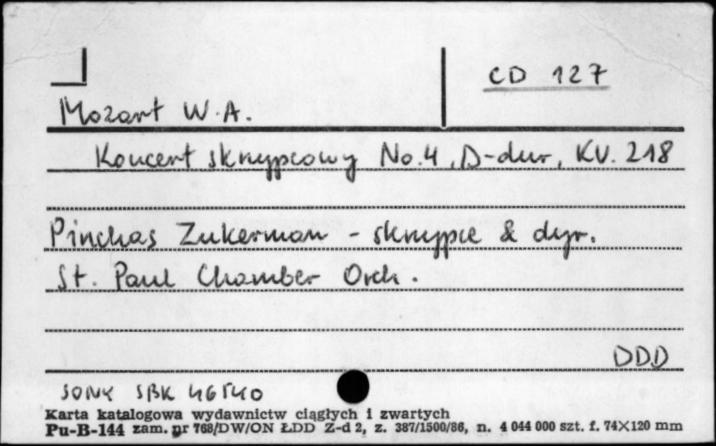 CD 127
Mozart W.A.
Koncert skrzypcowy No.4, D-dur, KV. 218
Pinchas Zukerman - skrzypce & dyr.
St. Paul Chamber Orch.
DDD
SONY SBK 46540
Karta katalogowa wydawnictw ciągłych i zwartych
Pu-B-144 zam. nr 768/DW/ON ŁDD Z-d 2, z. 387/1500/86, n. 4 044 000 szt. f. 74×120 mm